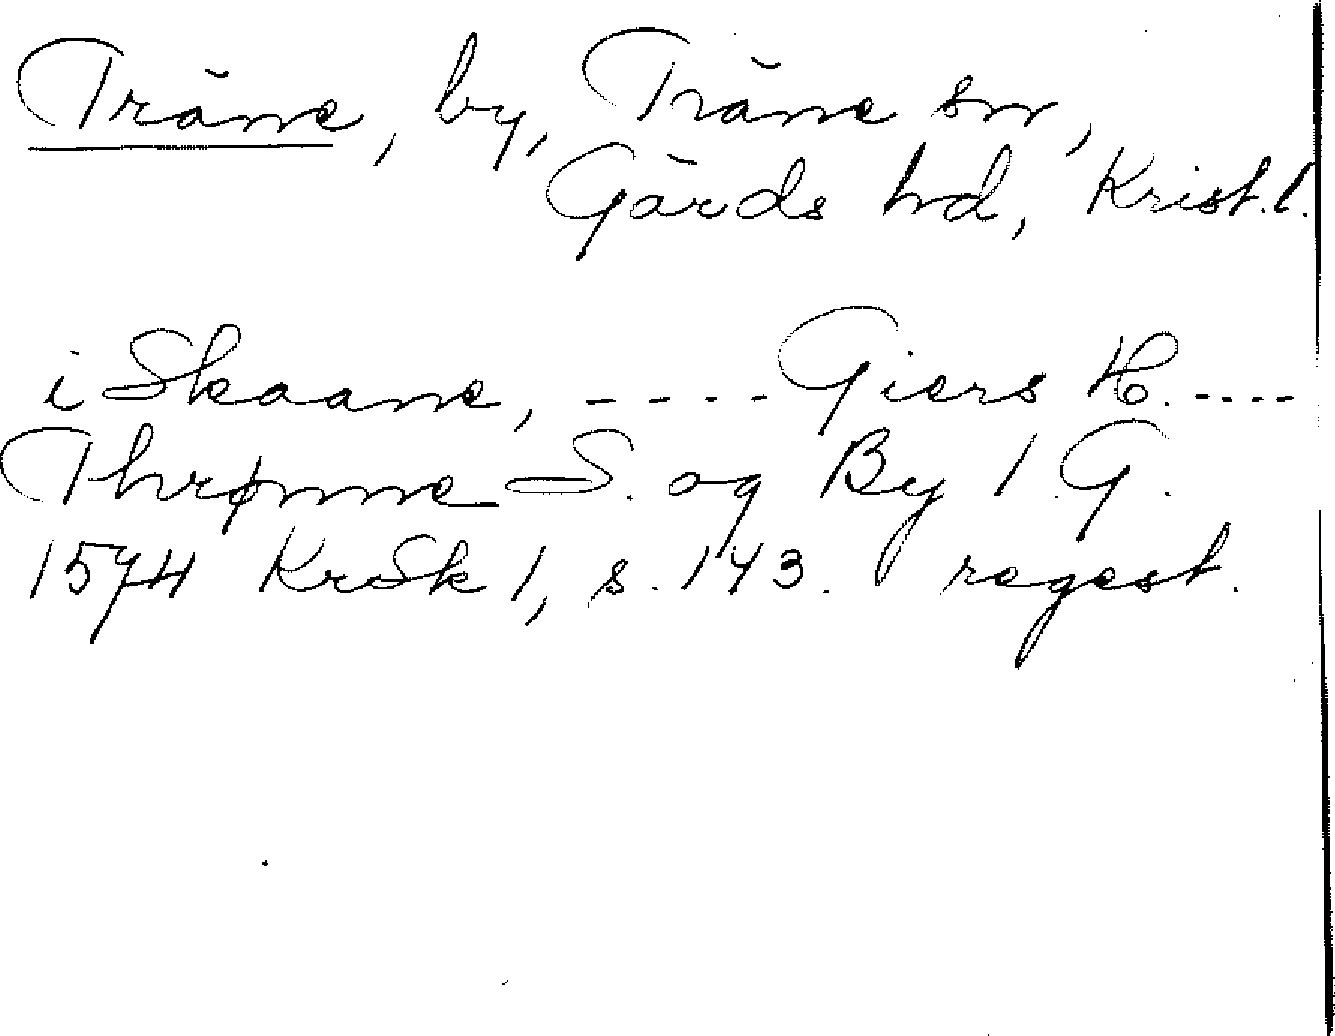 Träne, by, Träne sn,
Gärds hd, Krist. l.
i Skaane, ---- Giers H. ----
Thrønne S. og By 1 G.
1574 KrSk 1, s. 143. regest.